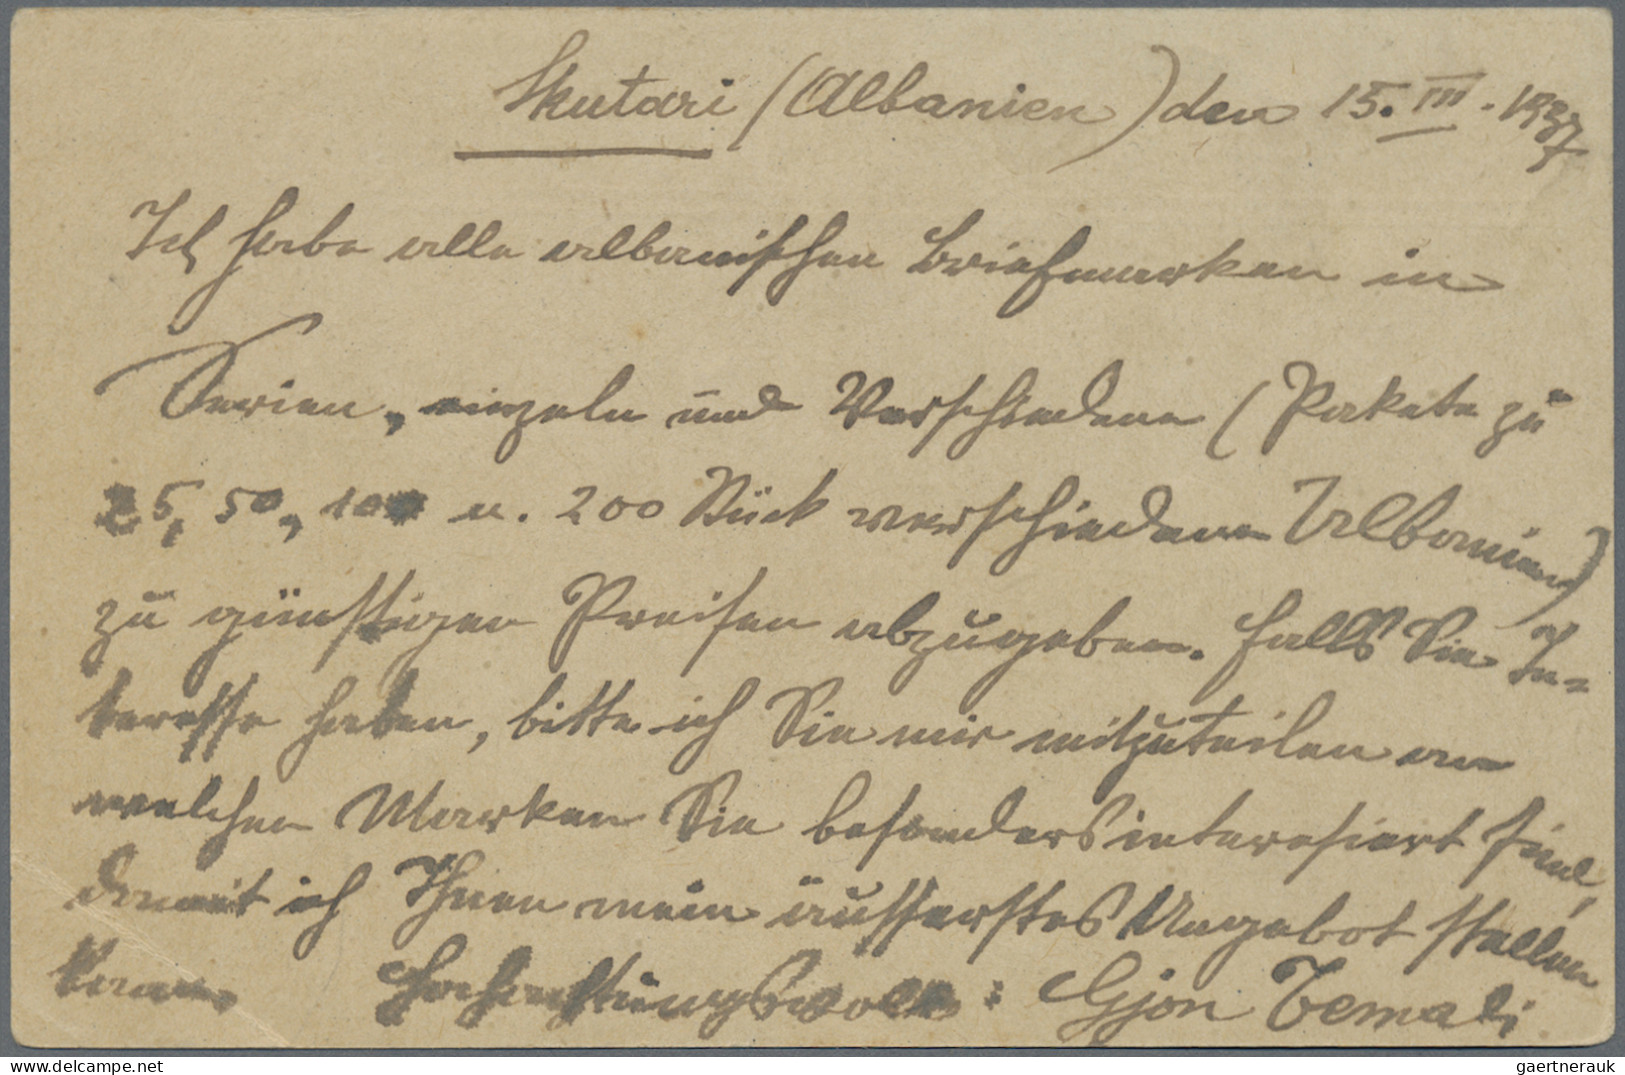 Skutari (Albanien) den 15. III. 1937
Ich habe alle albanischen Briefmarken in
Serien, einzeln und Verschiedene (Pakete zu
25, 50, 100 u. 200 Stück verschiedene Albanien)
zu günstigen Preisen abzugeben. Falls Sie In-
teresse haben, bitte ich Sie mir mitzuteilen an
welchen Marken Sie besonders interesiert sind,
damit ich Ihnen mein äusserstes Angebot stellen
kann. Hochachtungsvoll: Gjon Temali
gaertnerauk